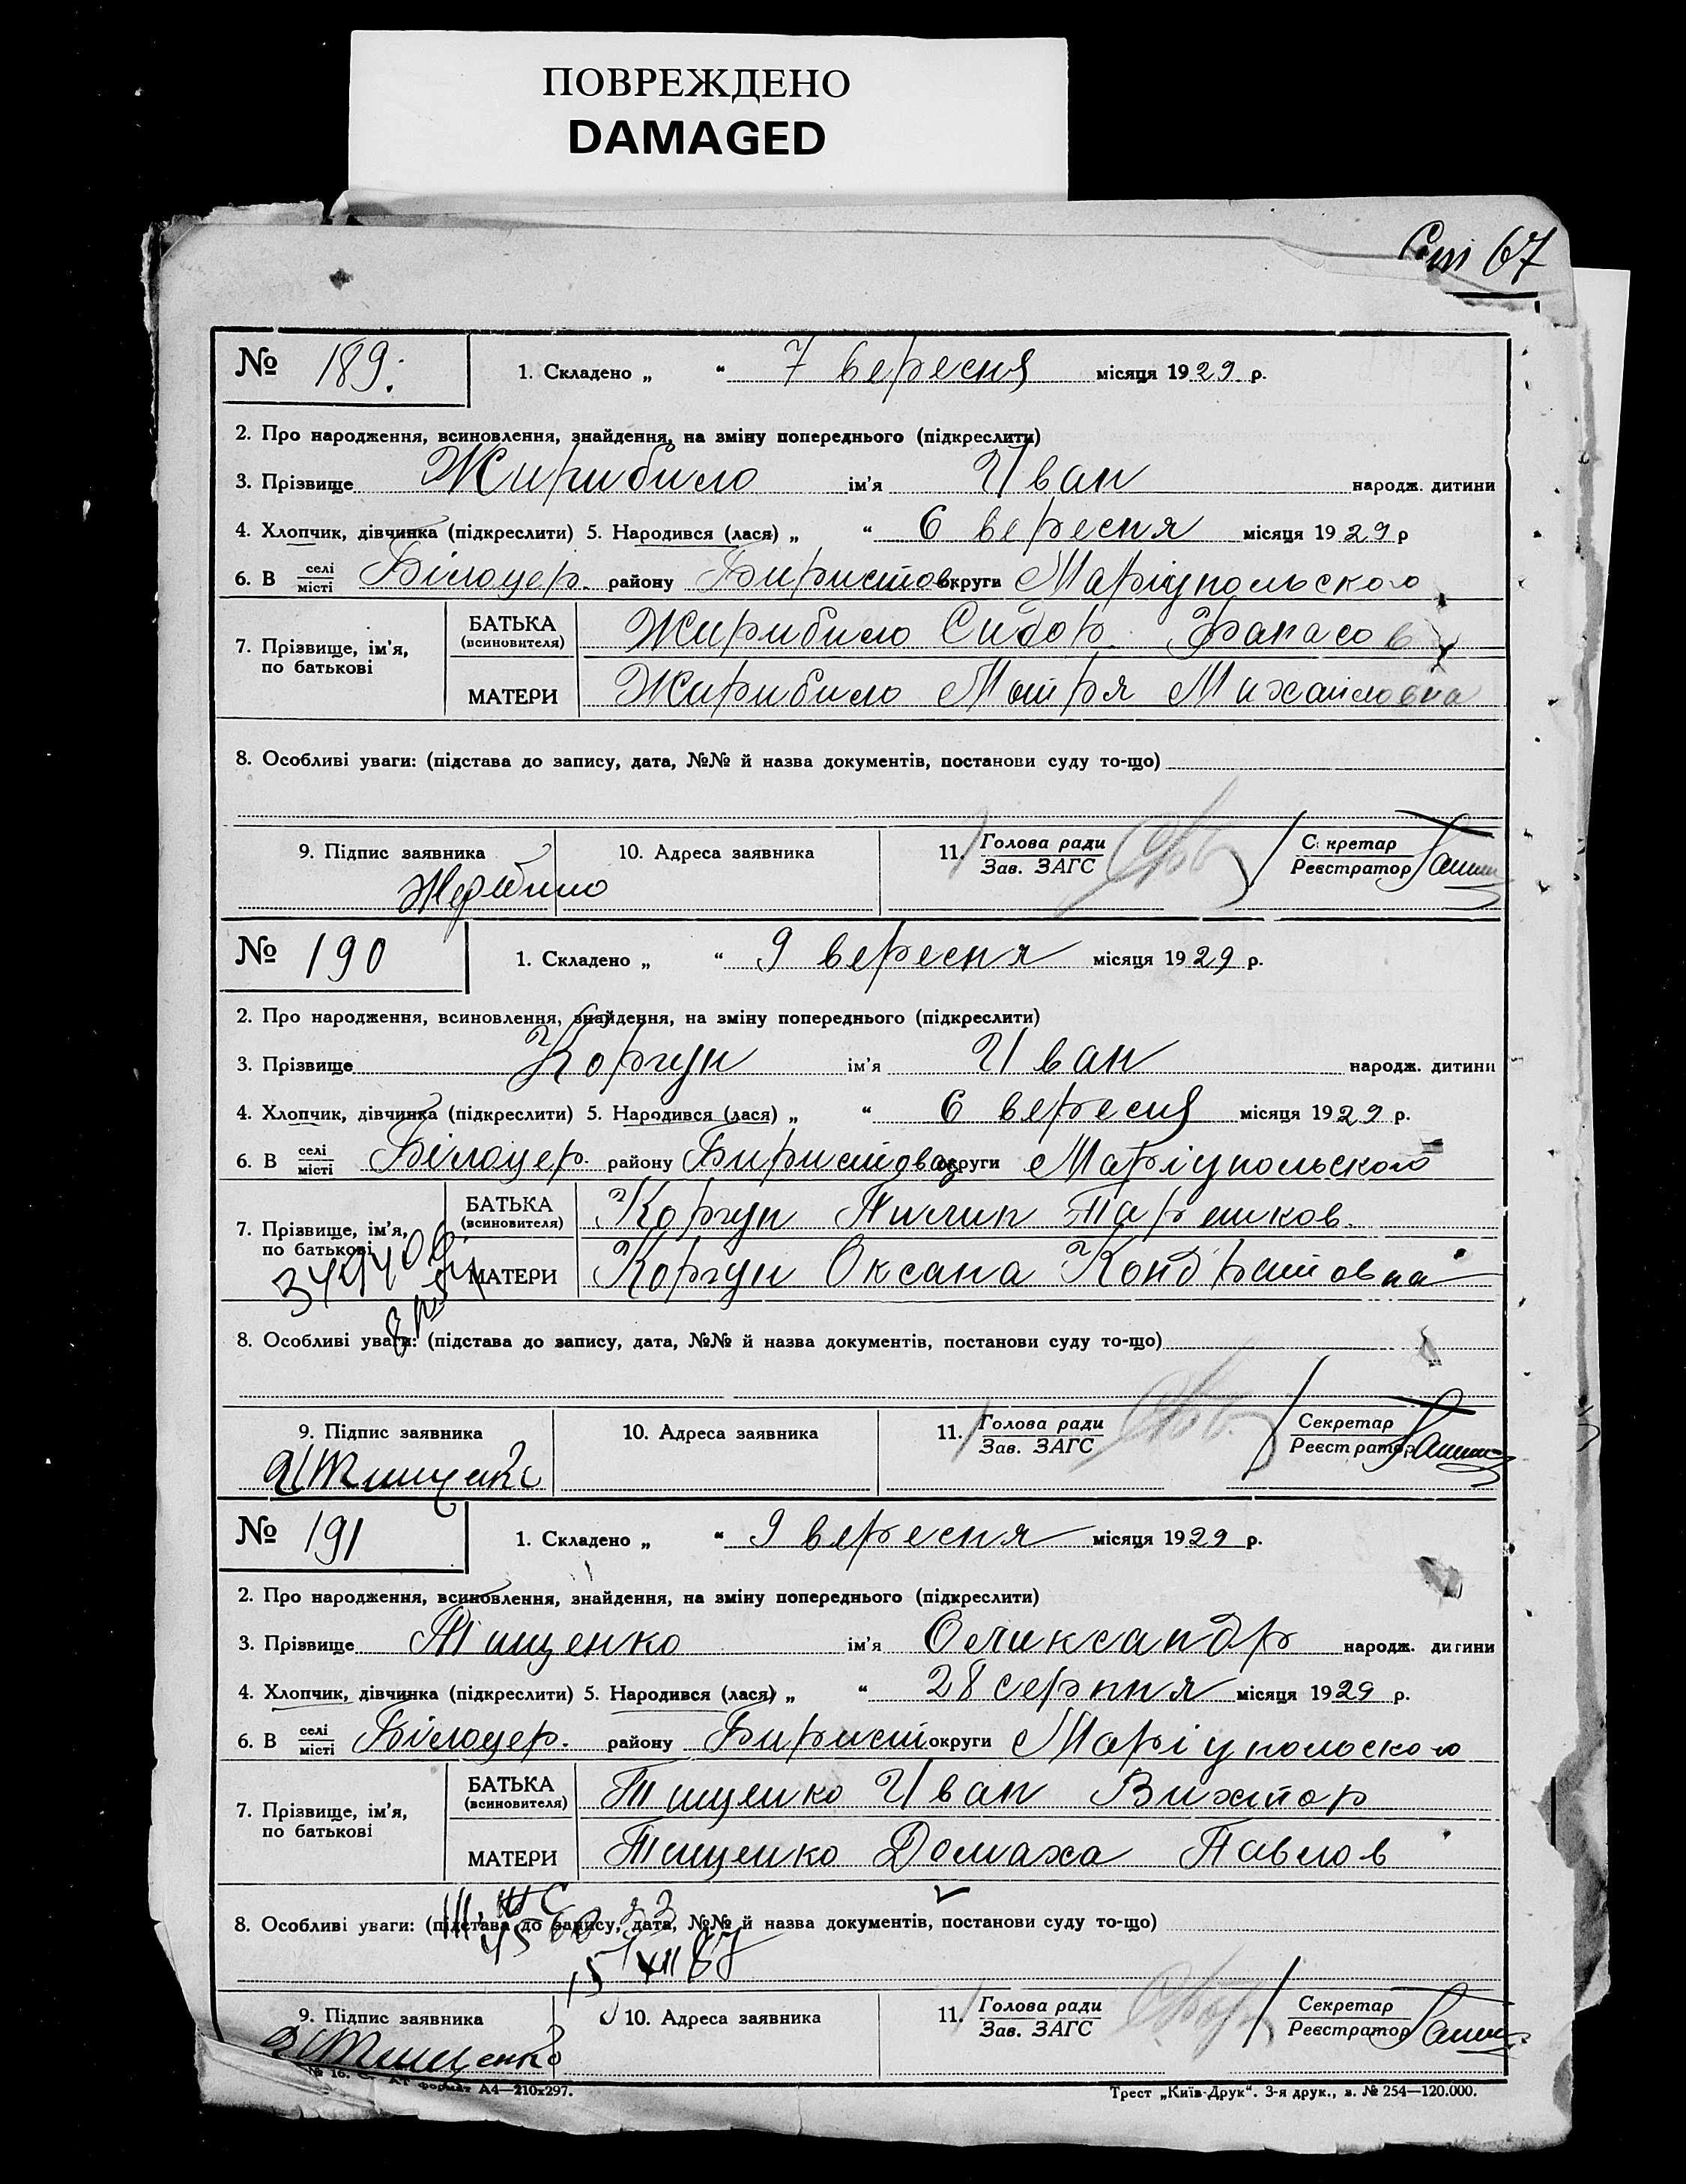 ПОВРЕЖДЕНО
DAMAGED
67
№ 189. 1. Складено „ “ 7 вересня місяця 1929 р.
2. Про народження, всиновлення, знайдення, на зміну попереднього (підкреслити)
3. Прізвище Жирибило ім'я Иван народж. дитини
4. Хлопчик, дівчинка (підкреслити) 5. Народився (лася) „ “ 6 вересня місяця 1929 р
6. В селі місті Білоцер. району Биристов округи Маріупольского
7. Прізвище, ім'я, по батькові
БАТЬКА (всиновителя) Жирибило Сидор Фанасов
МАТЕРИ Жирибило Мотря Михайловна
8. Особливі уваги: (підстава до запису, дата, №№ й назва документів, постанови суду то-що)
9. Підпис заявника 10. Адреса заявника 11. Голова ради Зав. ЗАГС Секретар Реєстратор
№ 190 1. Складено „ “ 9 вересня місяця 1929 р.
2. Про народження, всиновлення, знайдення, на зміну попереднього (підкреслити)
3. Прізвище Коргун ім'я Иван народж. дитини
4. Хлопчик, дівчинка (підкреслити) 5. Народився (лася) „ “ 6 вересня місяця 1929 р.
6. В селі місті Білоцер. району Биристовск округи Маріупольского
7. Прізвище, ім'я, по батькові
БАТЬКА (всиновителя) Коргун Пилип
МАТЕРИ Коргун Оксана Кондратовна
8. Особливі уваги: (підстава до запису, дата, №№ й назва документів, постанови суду то-що)
9. Підпис заявника 10. Адреса заявника 11. Голова ради Зав. ЗАГС Секретар Реєстратор
ИТищенко
№ 191 1. Складено „ “ 9 вересня місяця 1929 р.
2. Про народження, всиновлення, знайдення, на зміну попереднього (підкреслити)
3. Прізвище Тищенко ім'я Оликсандр народж. дитини
4. Хлопчик, дівчинка (підкреслити) 5. Народився (лася) „ “ 28 серпня місяця 1929 р.
6. В селі місті Білоцер. району Бирист округи Маріупольского
7. Прізвище, ім'я, по батькові
БАТЬКА (всиновителя) Тищенко Иван Вихтор
МАТЕРИ Тищенко Домаха Павлов
8. Особливі уваги: (підстава до запису, дата, №№ й назва документів, постанови суду то-що)
9. Підпис заявника 10. Адреса заявника 11. Голова ради Зав. ЗАГС Секретар Реєстратор
ИТищенко
формат А4—210х297. Трест „Київ-Друк“. 3-я друк., з. № 254—120.000.